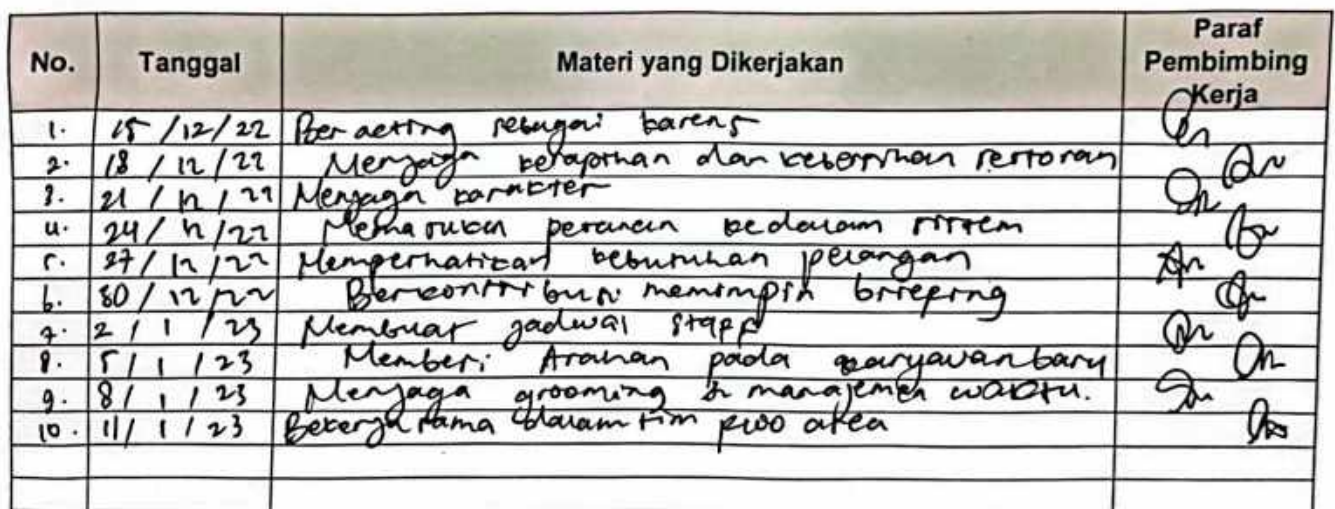 No. Tanggal Materi yang Dikerjakan Paraf Pembimbing Kerja
1. 15/12/22 Ber acting sebagai
2. 18/12/22 Menjaga kerapihan dan kebersihan restoran
3. 21/12/22 Menjaga karakter
4. 24/12/22 Memasukan pesanan kedalam sistem
5. 27/12/22 Memperhatikan kebutuhan pelangan
6. 30/12/22 Berkontribusi memimpin briefing
7. 2/1/23 Membuat jadwal staff
8. 5/1/23 Memberi Arahan pada karyawan baru
9. 8/1/23 Menjaga grooming & manajemen waktu.
10. 11/1/23 Bekerja sama dalam tim area